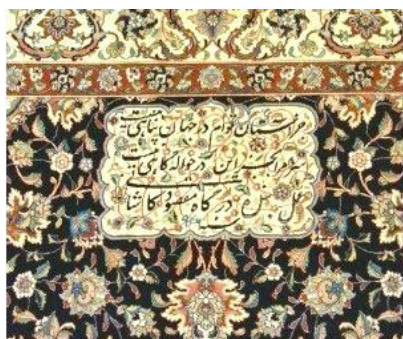 جز آستان توام در جهان پناهی نیست
سر مرا بجز این در حواله گاهی نیست
عمل بنده درگاه مقصود کاشانی